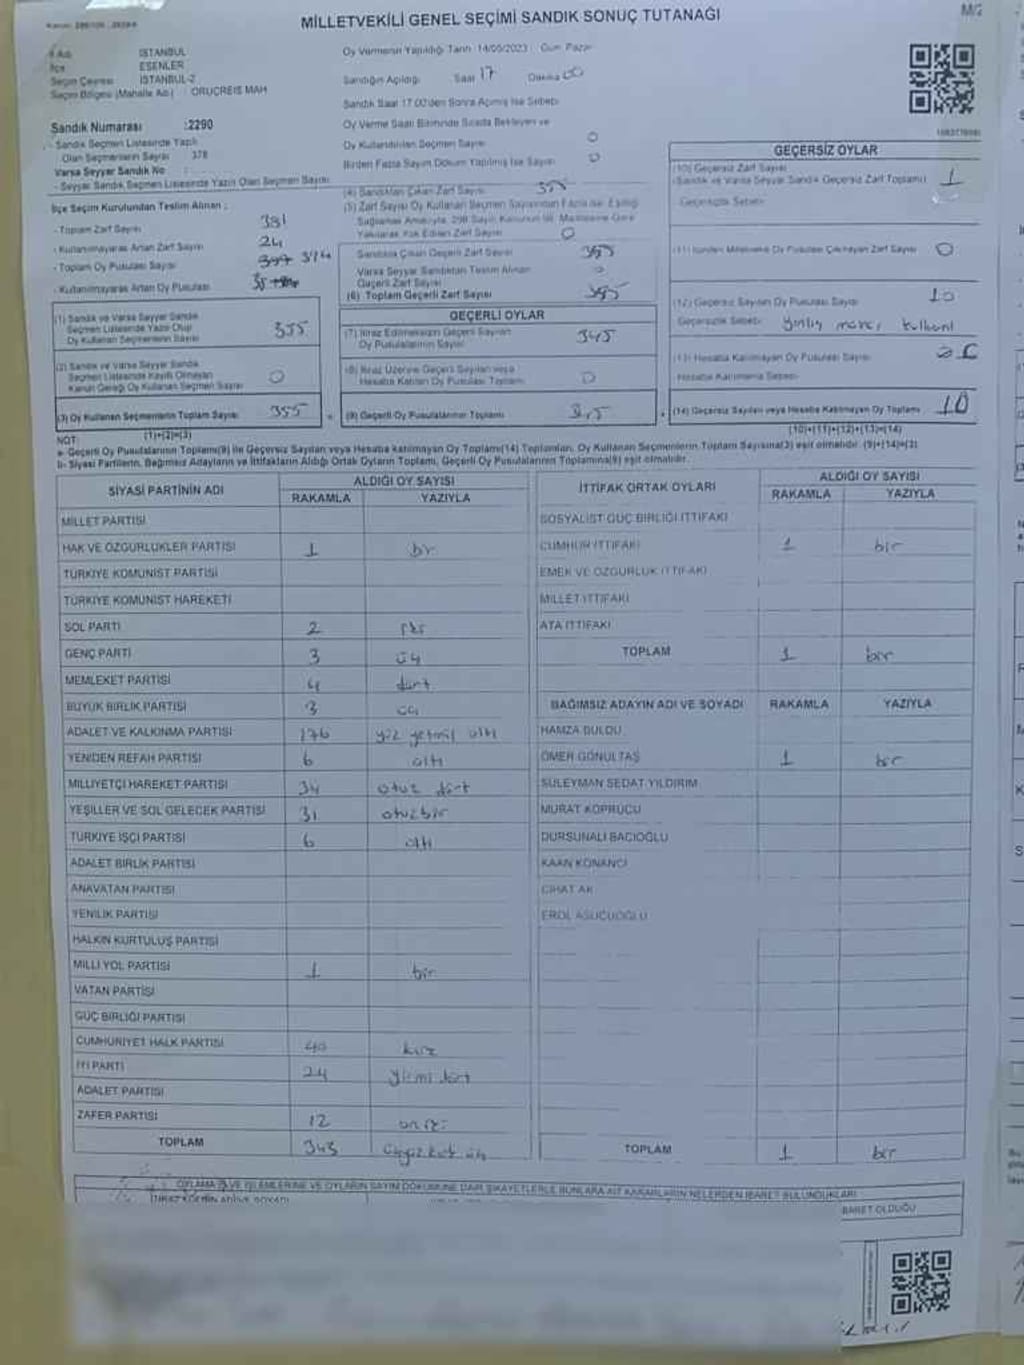 MİLLETVEKİLİ GENEL SEÇİMİ SANDIK SONUÇ TUTANAĞI
M/2
İl Adı : İSTANBUL
İlçe : ESENLER
Seçim Çevresi : İSTANBUL-2
Seçim Bölgesi (Mahalle Adı) : ORUÇREİS MAH
Sandık Numarası :2290
- Sandık Seçmen Listesinde Yazılı
Olan Seçmenlerin Sayısı : 378
Varsa Seyyar Sandık No :
- Seyyar Sandık Seçmen Listesinde Yazılı Olan Seçmen Sayısı
İlçe Seçim Kurulundan Teslim Alınan :
- Toplam Zarf Sayısı 381
- Kullanılmayarak Artan Zarf Sayısı 24
- Toplam Oy Pusulası Sayısı
- Kullanılmayarak Artan Oy Pusulası
(1) Sandık ve Varsa Seyyar Sandık
Seçmen Listesinde Yazılı Olup
Oy Kullanan Seçmenlerin Sayısı 355
(2) Sandık ve Varsa Seyyar Sandık
Seçmen Listesinde Kayıtlı Olmayan
Kanun Gereği Oy Kullanan Seçmen Sayısı 0
(3) Oy Kullanan Seçmenlerin Toplam Sayısı 355
(1)+(2)=(3)
Oy Vermenin Yapıldığı Tarih 14/05/2023 Gün Pazar
Sandığın Açıldığı Saat 17 Dakika 00
Sandık Saat 17.00'den Sonra Açılmış İse Sebebi
Oy Verme Saati Bitiminde Sırada Bekleyen ve
Oy Kullandırılan Seçmen Sayısı 0
Birden Fazla Sayım Döküm Yapılmış İse Sayısı 0
(4) Sandıktan Çıkan Zarf Sayısı 355
(5) Zarf Sayısı Oy Kullanan Seçmen Sayısından Fazla İse, Eşitliği
Sağlamak Amacıyla, 298 Sayılı Kanunun 98. Maddesine Göre
Yakılarak Yok Edilen Zarf Sayısı 0
Sandıkta Çıkan Geçerli Zarf Sayısı 355
Varsa Seyyar Sandıktan Teslim Alınan
Geçerli Zarf Sayısı 0
(6) Toplam Geçerli Zarf Sayısı 355
GEÇERLİ OYLAR
(7) İtiraz Edilmeksizin Geçerli Sayılan
Oy Pusulalarının Sayısı 345
(8) İtiraz Üzerine Geçerli Sayılan veya
Hesaba Katılan Oy Pusulası Toplamı 0
(9) Geçerli Oy Pusulalarının Toplamı 345
GEÇERSİZ OYLAR
(10) Geçersiz Zarf Sayısı
(Sandık ve Varsa Seyyar Sandık Geçersiz Zarf Toplamı) 1
Geçersizlik Sebebi
(11) İçinden Milletvekili Oy Pusulası Çıkmayan Zarf Sayısı 0
(12) Geçersiz Sayılan Oy Pusulası Sayısı 10
Geçersizlik Sebebi
(13) Hesaba Katılmayan Oy Pusulası Sayısı
Hesaba Katılmama Sebebi
(14) Geçersiz Sayılan veya Hesaba Katılmayan Oy Toplamı 10
(10)+(11)+(12)+(13)=(14)
NOT:
a- Geçerli Oy Pusulalarının Toplamı(9) ile Geçersiz Sayılan veya Hesaba katılmayan Oy Toplamı(14) Toplamları, Oy Kullanan Seçmenlerin Toplam Sayısına(3) eşit olmalıdır. (9)+(14)=(3)
b- Siyasi Partilerin, Bağımsız Adayların ve İttifakların Aldığı Ortak Oyların Toplamı, Geçerli Oy Pusulalarının Toplamına(9) eşit olmalıdır.
SİYASİ PARTİNİN ADI ALDIĞI OY SAYISI
RAKAMLA YAZIYLA
MİLLET PARTİSİ
HAK VE ÖZGÜRLÜKLER PARTİSİ 1 bir
TÜRKİYE KOMÜNİST PARTİSİ
TÜRKİYE KOMÜNİST HAREKETİ
SOL PARTİ 2 iki
GENÇ PARTİ 3 üç
MEMLEKET PARTİSİ 4 dört
BÜYÜK BİRLİK PARTİSİ 3 üç
ADALET VE KALKINMA PARTİSİ 176 yüz yetmiş altı
YENİDEN REFAH PARTİSİ 6 altı
MİLLİYETÇİ HAREKET PARTİSİ 34 otuz dört
YEŞİLLER VE SOL GELECEK PARTİSİ 31 otuzbir
TÜRKİYE İŞÇİ PARTİSİ 6 altı
ADALET BİRLİK PARTİSİ
ANAVATAN PARTİSİ
YENİLİK PARTİSİ
HALKIN KURTULUŞ PARTİSİ
MİLLİ YOL PARTİSİ 1 bir
VATAN PARTİSİ
GÜÇ BİRLİĞİ PARTİSİ
CUMHURİYET HALK PARTİSİ 40 kırk
İYİ PARTİ 24 yirmi dört
ADALET PARTİSİ
ZAFER PARTİSİ 12 on iki
TOPLAM 343
İTTİFAK ORTAK OYLARI ALDIĞI OY SAYISI
RAKAMLA YAZIYLA
SOSYALİST GÜÇ BİRLİĞİ İTTİFAKI
CUMHUR İTTİFAKI 1 bir
EMEK VE ÖZGÜRLÜK İTTİFAKI
MİLLET İTTİFAKI
ATA İTTİFAKI
TOPLAM 1 bir
BAĞIMSIZ ADAYIN ADI VE SOYADI RAKAMLA YAZIYLA
HAMZA DULDU
ÖMER GÖNÜLTAŞ 1 bir
SÜLEYMAN SEDAT YILDIRIM
MURAT KÖPRÜCÜ
DURSUNALİ BACIOĞLU
KAAN KONANCI
CİHAT AK
EROL ASUCUOĞLU
TOPLAM 1 bir
OYLAMA İŞ VE İŞLEMLERİNE VE OYLARIN SAYIM DÖKÜMÜNE DAİR ŞİKAYETLERLE BUNLARA AİT KARARLARIN NELERDEN İBARET BULUNDUKLARI